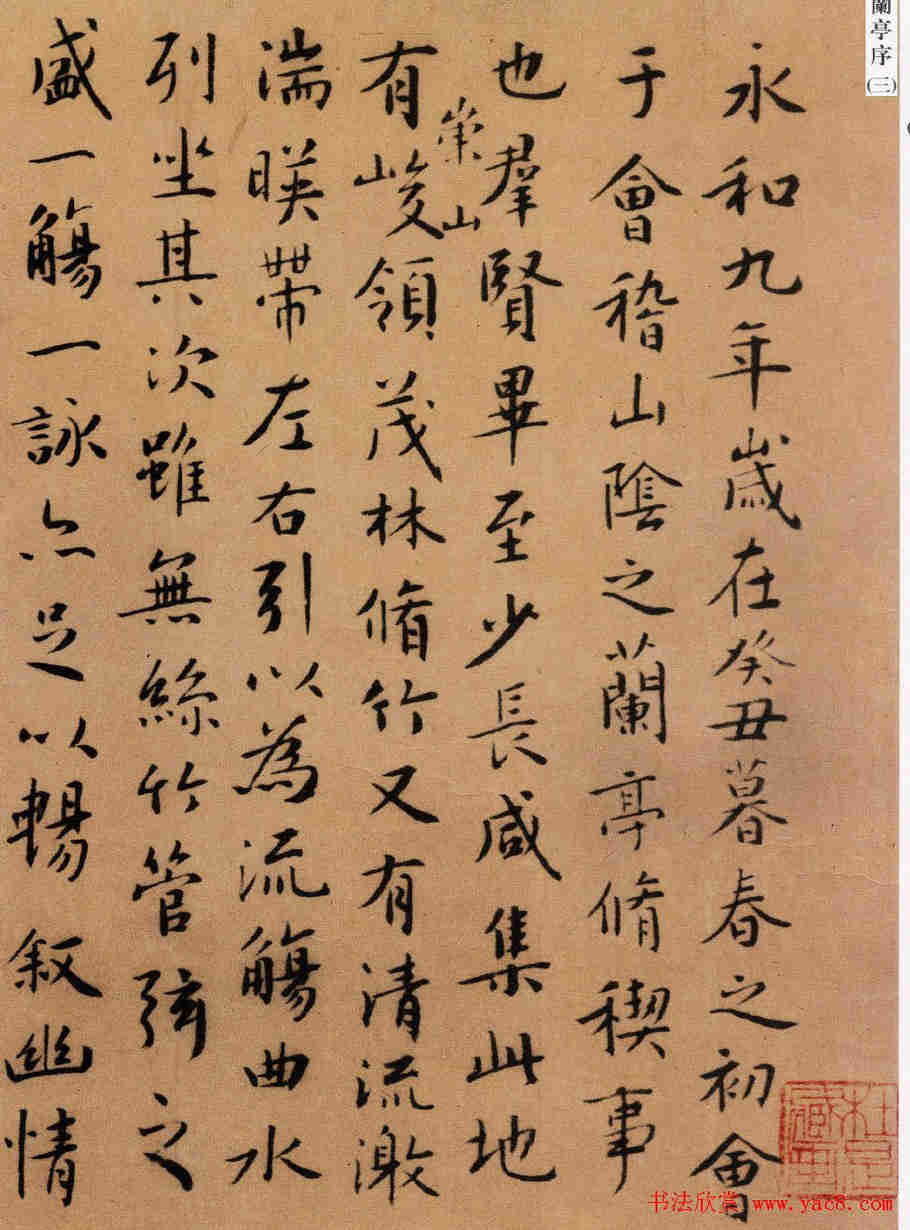 蘭亭序(三)
永和九年歲在癸丑暮春之初會
于會稽山陰之蘭亭脩稧事
也羣賢畢至少長咸集此地
有崇山峻領茂林脩竹又有清流激
湍暎帶左右引以為流觴曲水
列坐其次雖無絲竹管弦之
盛一觴一詠亦足以暢叙幽情
书法欣赏 www.yac8.com